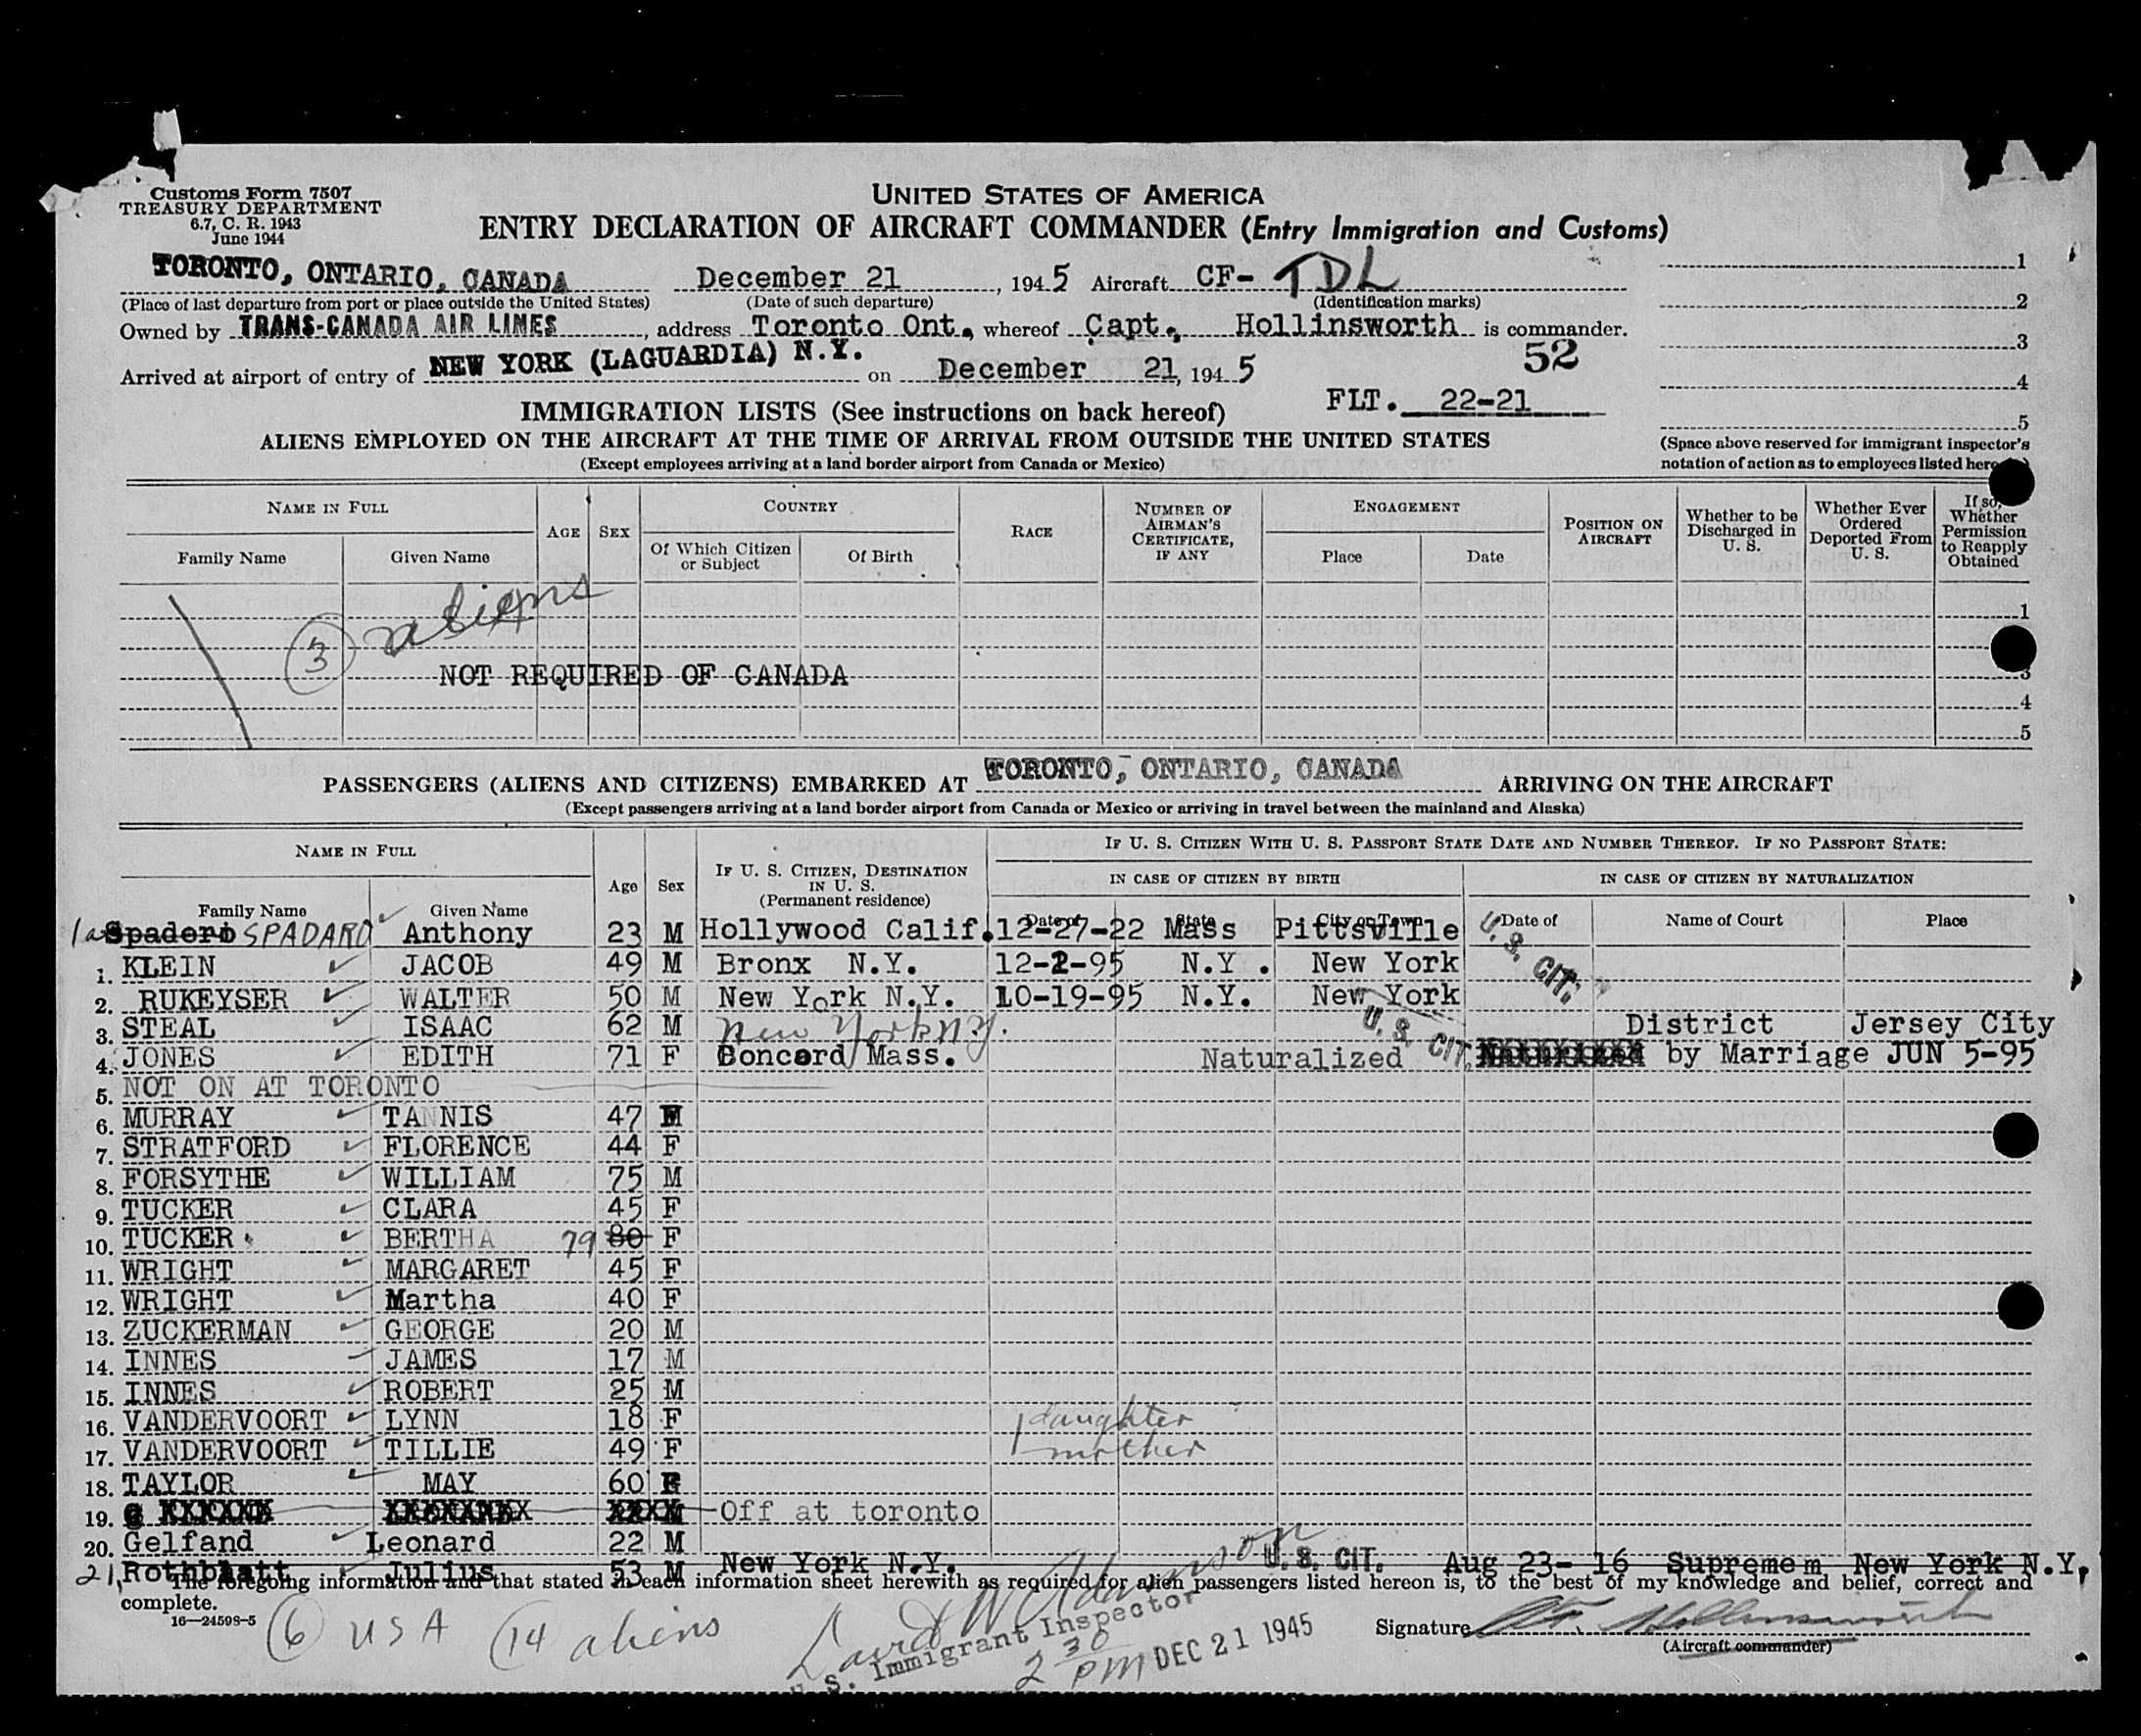 Customs Form 7507
TREASURY DEPARTMENT
6.7, C. R. 1943
June 1944
UNITED STATES OF AMERICA
ENTRY DECLARATION OF AIRCRAFT COMMANDER (Entry Immigration and Customs)
TORONTO, ONTARIO, CANADA December 21, 1945 Aircraft CF- TDL
(Place of last departure from port or place outside the United States) (Date of such departure) (Identification marks)
Owned by TRANS-CANADA AIR LINES, address Toronto Ont., whereof Capt., Hollinsworth is commander.
52
Arrived at airport of entry of NEW YORK (LAGUARDIA) N.Y. on December 21, 1945
FLT. 22-21
1
2
3
4
5
(Space above reserved for immigrant inspector's
notation of action as to employees listed
IMMIGRATION LISTS (See instructions on back hereof)
ALIENS EMPLOYED ON THE AIRCRAFT AT THE TIME OF ARRIVAL FROM OUTSIDE THE UNITED STATES
(Except employees arriving at a land border airport from Canada or Mexico)
NAME IN FULL
Family Name Given Name
AGE SEX
COUNTRY
Of Which Citizen or Subject Of Birth
RACE
NUMBER OF AIRMAN'S CERTIFICATE, IF ANY
ENGAGEMENT
Place Date
POSITION ON AIRCRAFT
Whether to be Discharged in U. S.
Whether Ever Ordered Deported From U. S.
If so, Whether Permission to Reapply Obtained
3 aliens
NOT REQUIRED OF CANADA
1
3
4
5
PASSENGERS (ALIENS AND CITIZENS) EMBARKED AT TORONTO, ONTARIO, CANADA ARRIVING ON THE AIRCRAFT
(Except passengers arriving at a land border airport from Canada or Mexico or arriving in travel between the mainland and Alaska)
NAME IN FULL
Family Name Given Name
Age Sex
IF U. S. CITIZEN, DESTINATION IN U. S. (Permanent residence)
IF U. S. CITIZEN WITH U. S. PASSPORT STATE DATE AND NUMBER THEREOF. IF NO PASSPORT STATE:
IN CASE OF CITIZEN BY BIRTH IN CASE OF CITIZEN BY NATURALIZATION
Date of State City or Town Date of Name of Court Place
1a Spadero SPADARO Anthony 23 M Hollywood Calif. 12-27-22 Mass Pittsville
U. S. CIT.
1. KLEIN JACOB 49 M Bronx N.Y. 12-2-95 N.Y. New York
2. RUKEYSER WALTER 50 M New York N.Y. 10-19-95 N.Y. New York
3. STEAL ISAAC 62 M New York N.Y. U. S. CIT. District Jersey City
4. JONES EDITH 71 F Concord Mass. Naturalized by Marriage JUN 5-95
5. NOT ON AT TORONTO
6. MURRAY TANNIS 47 F
7. STRATFORD FLORENCE 44 F
8. FORSYTHE WILLIAM 75 M
9. TUCKER CLARA 45 F
10. TUCKER BERTHA 79 80 F
11. WRIGHT MARGARET 45 F
12. WRIGHT Martha 40 F
13. ZUCKERMAN GEORGE 20 M
14. INNES JAMES 17 M
15. INNES ROBERT 25 M
16. VANDERVOORT LYNN 18 F daughter
17. VANDERVOORT TILLIE 49 F mother
18. TAYLOR MAY 60 F
19. Off at toronto
20. Gelfand Leonard 22 M
21, Rothblatt Julius 53 M New York N.Y. U. S. CIT. Aug 23-16 Supremem New York N.Y.
The foregoing information and that stated in each information sheet herewith as required for alien passengers listed hereon is, to the best of my knowledge and belief, correct and
complete.
16—24598-5
6 USA 14 aliens
David W Adamson
U. S. Immigrant Inspector
2 30 PM DEC 21 1945
Signature
(Aircraft commander)